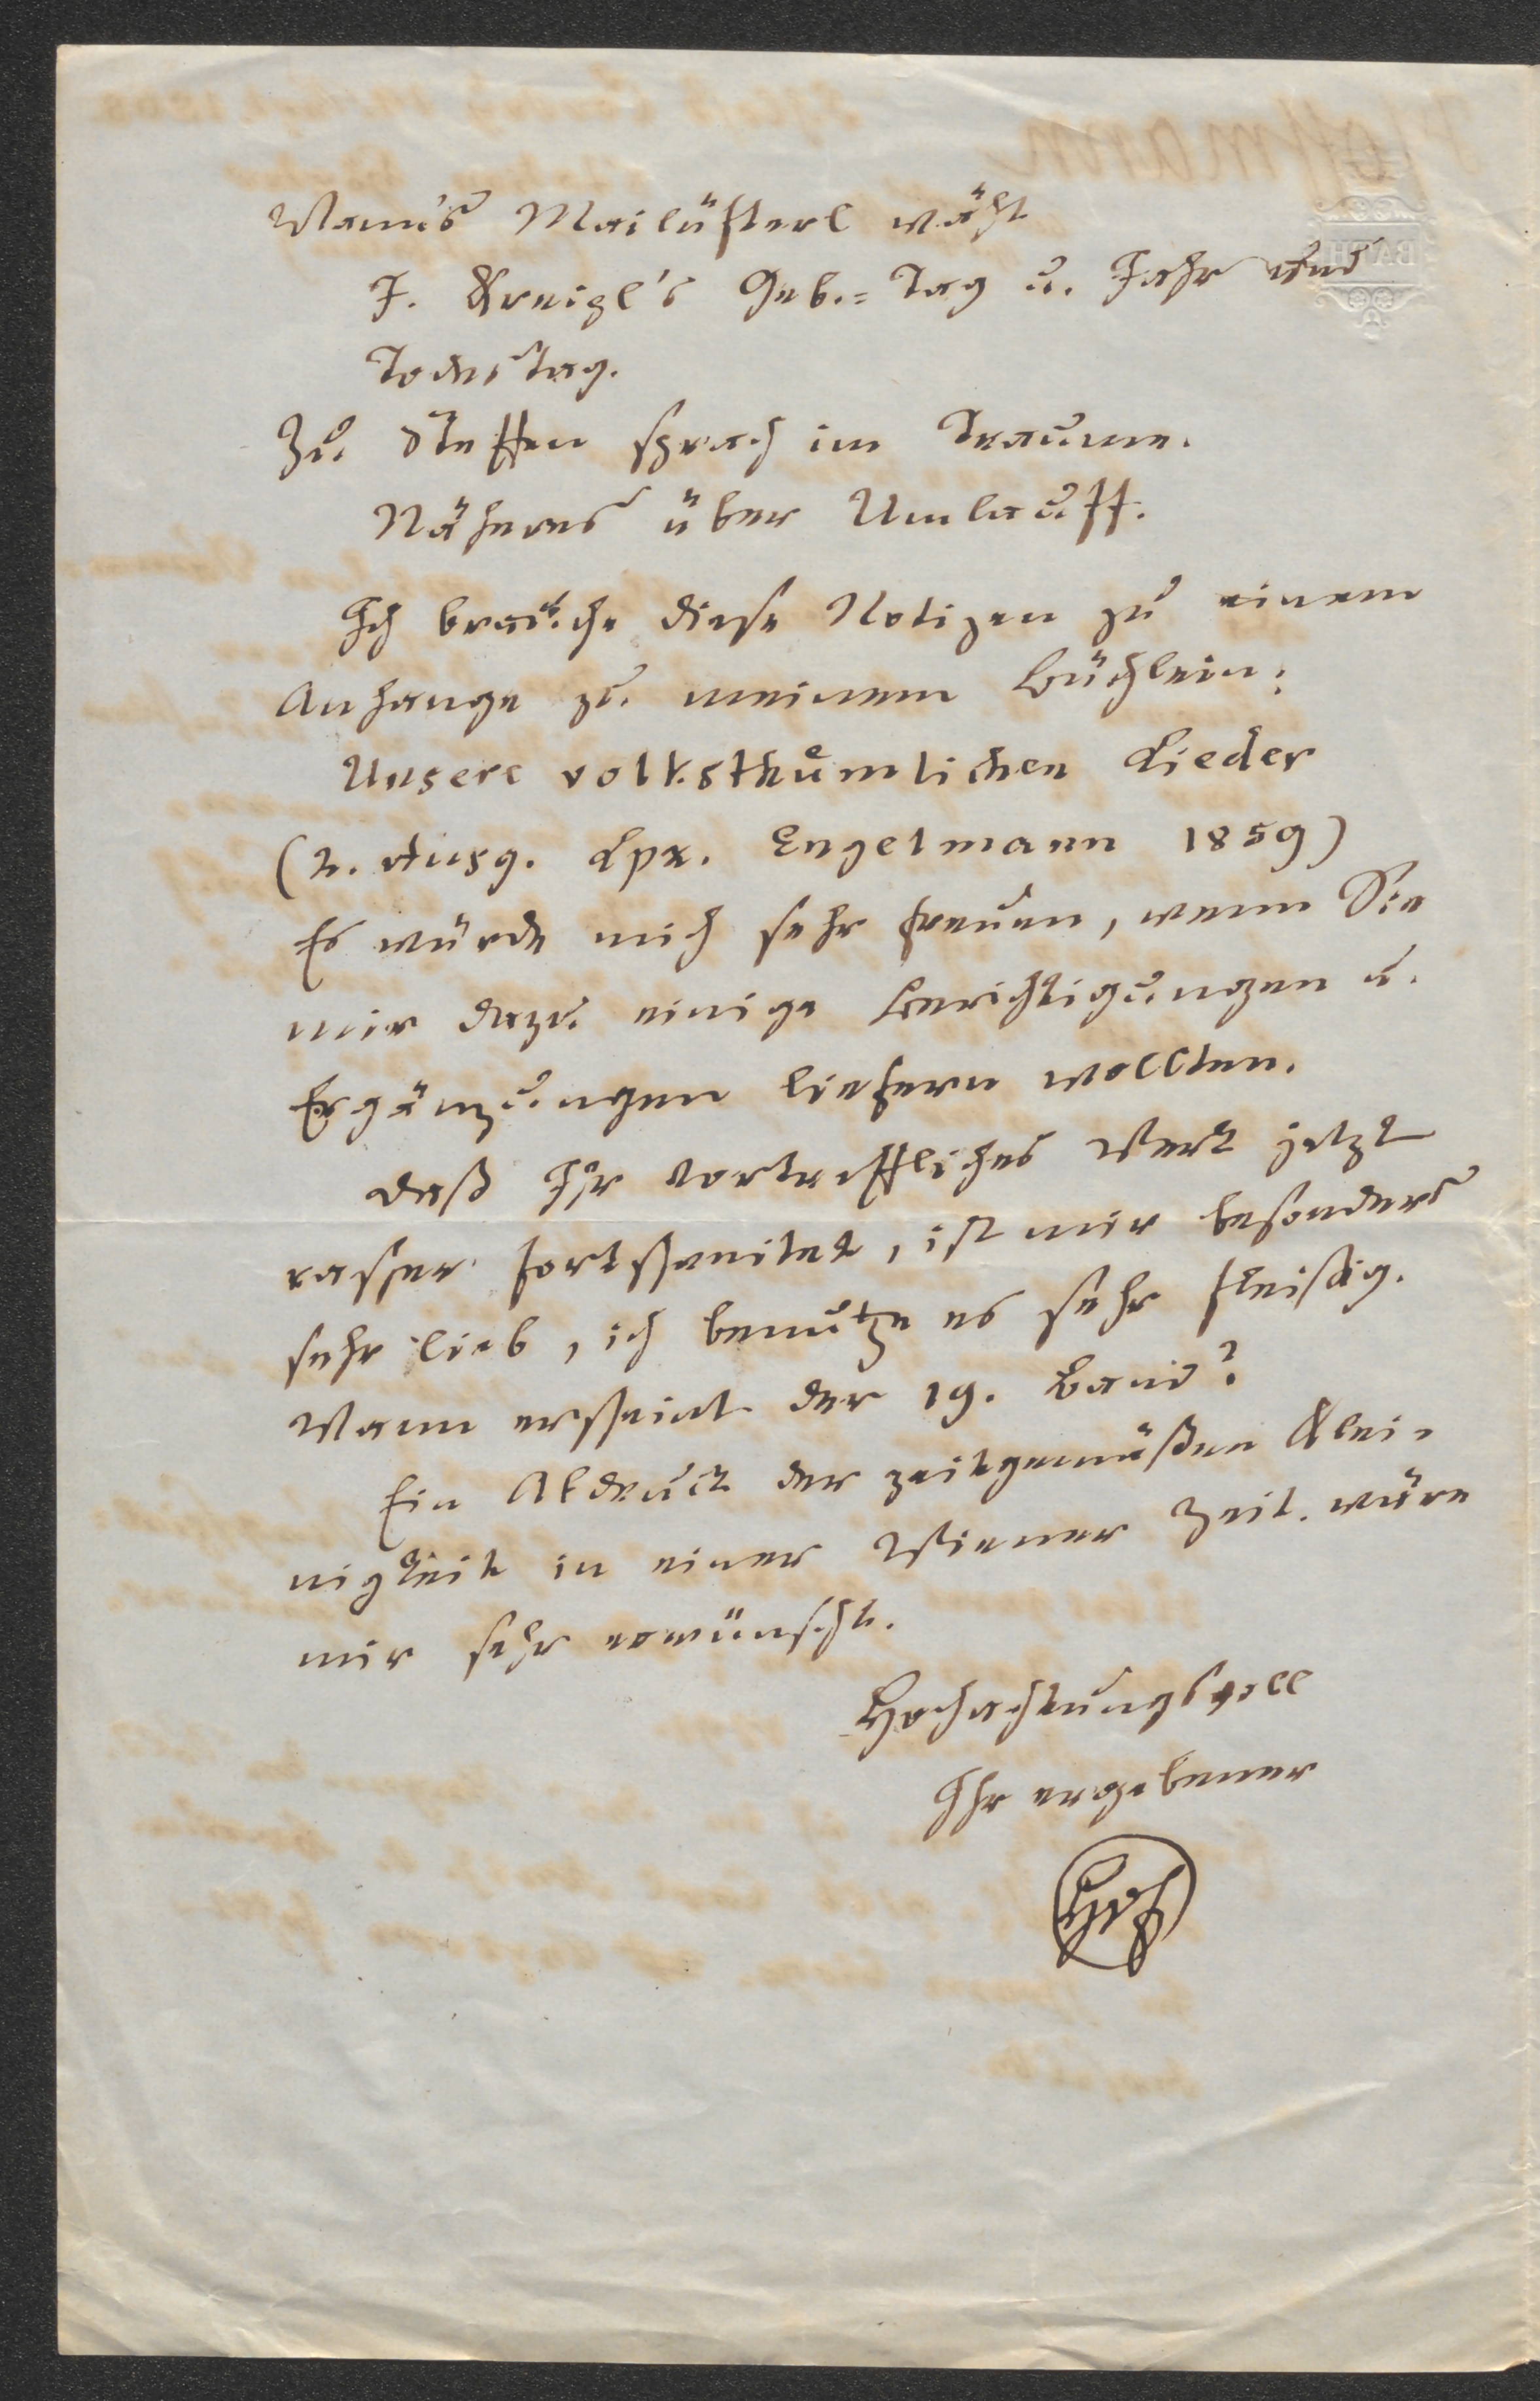 Wann's Mailüfterl wäht
J. Kreipl's Geb.=Tag u. Jahr und
Todestag.
Zu Steffen sprach im Traume.
Näheres über Umlauff.
Ich brauche diese Notizen zu einem
Anhange zu meinem Büchlein:
Unsere volksthümlichen Lieder
(2. Ausg. Lpz. Engelmann 1859)
Es würde mich sehr freuen, wenn Sie
mir dazu einige Berichtigungen u.
Ergänzungen liefern wollten.
Daß Ihr vortreffliches Werk jetzt
rascher fortschreitet, ist mir besonders
sehr lieb, ich benutze es sehr fleißig.
Wann erscheint der 19. Band?
Ein Abdruck der zeitgemäßen Klei-
nigkeit in einer Wiener Zeit. wäre
mir sehr erwünscht.
Hochachtungsvoll
Ihr ergebener
HvF